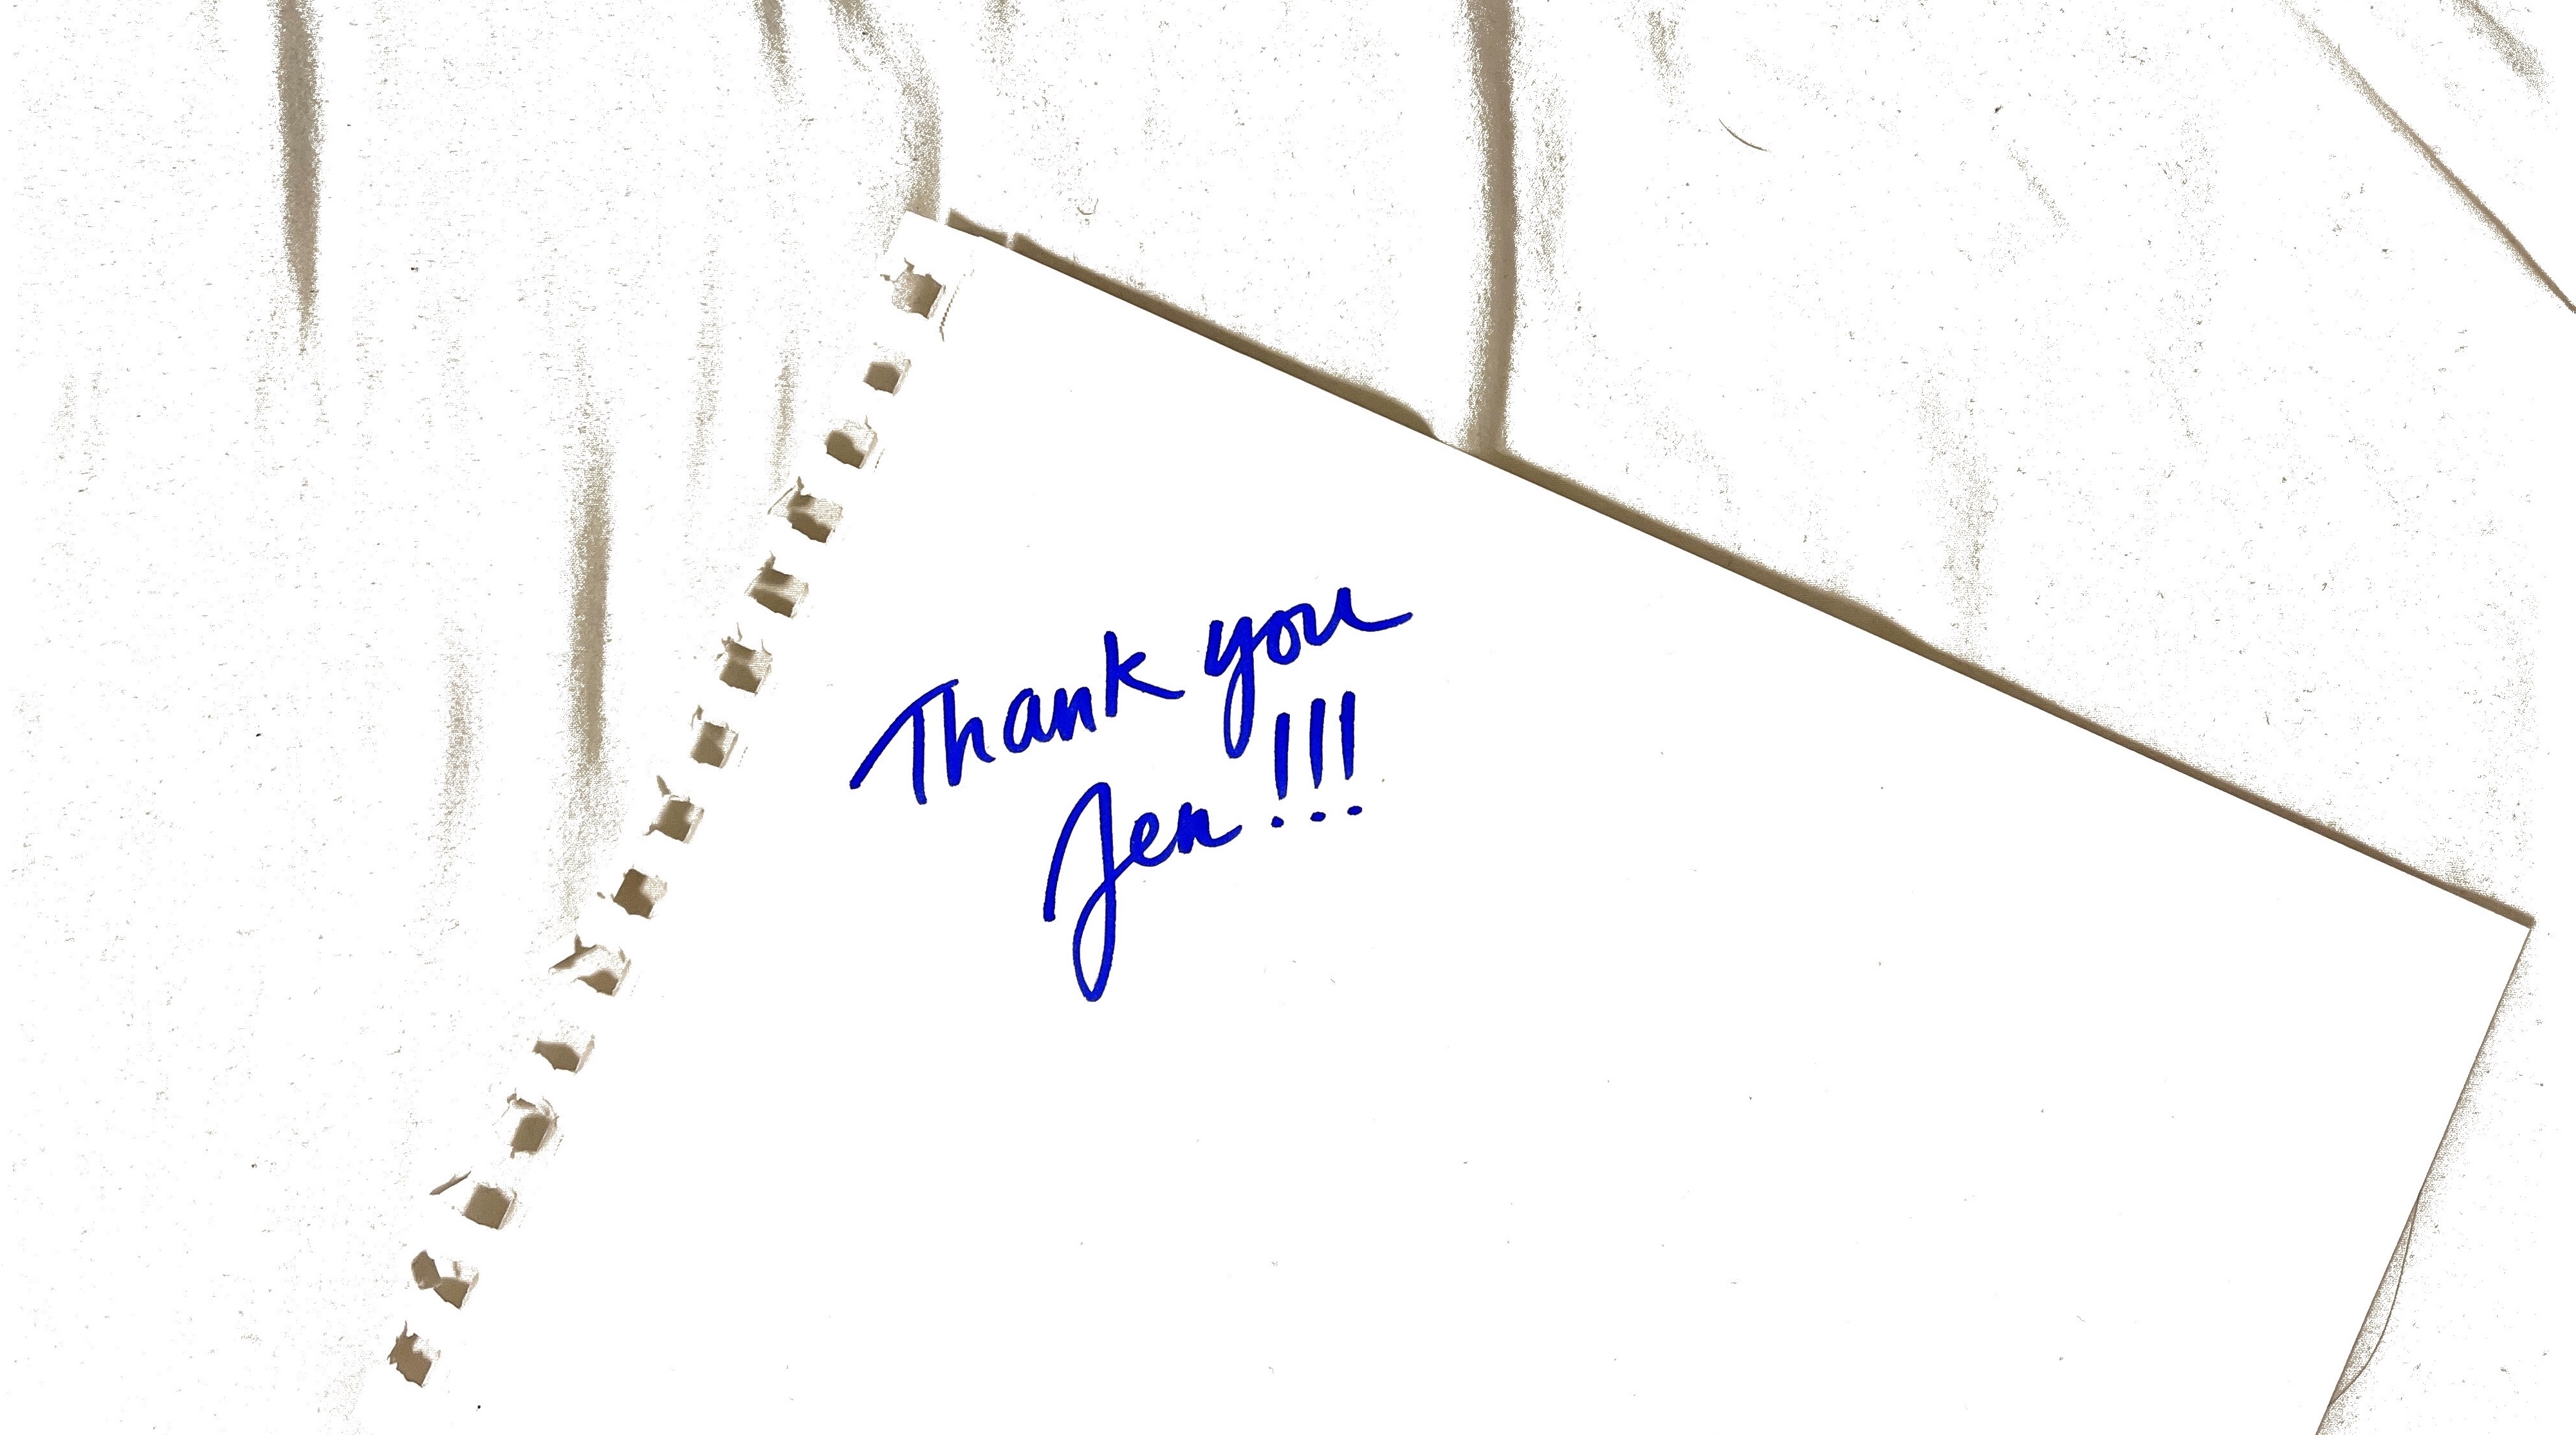 Thank you
Jen!!!